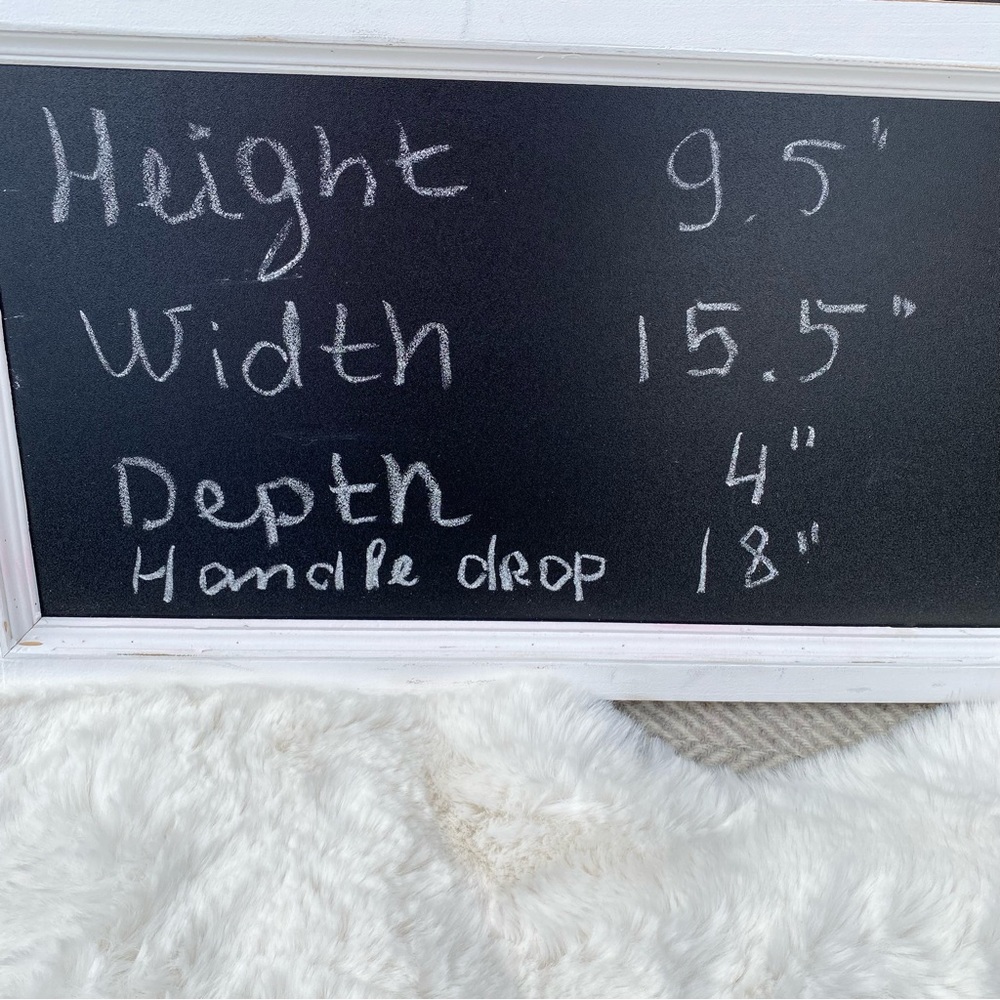 Height 9.5"
Width 15.5"
Depth 4"
Handle drop 18"